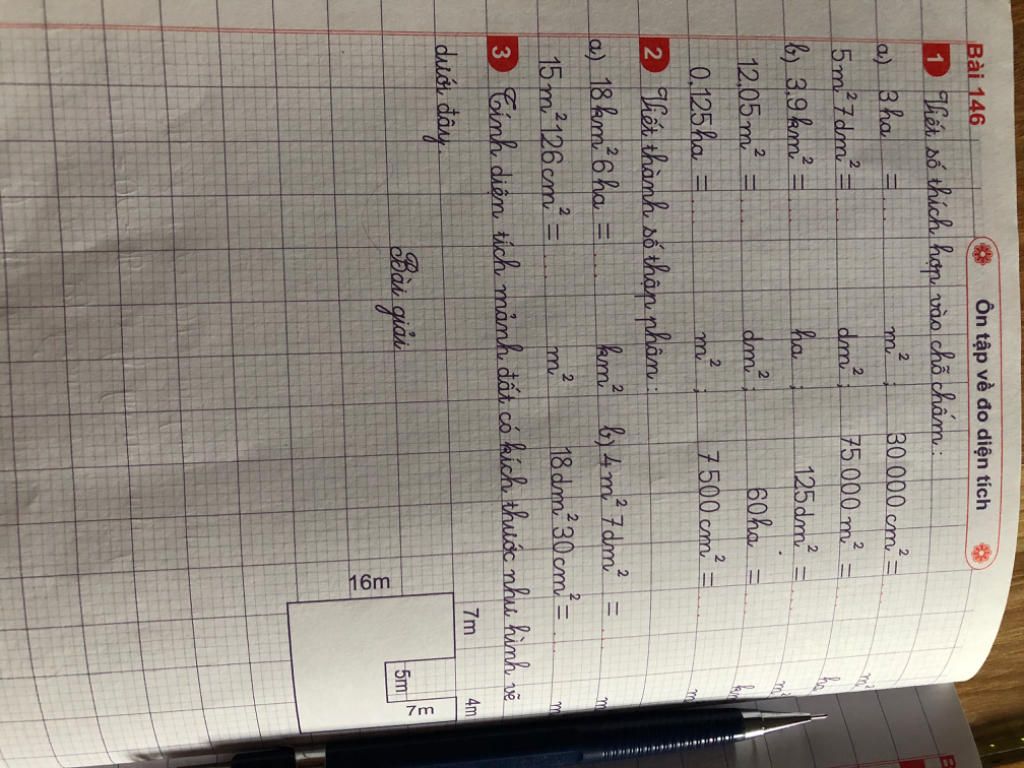 Bài 146
Ôn tập về đo diện tích
1 Viết số thích hợp vào chỗ chấm:
a) 3ha = ..... m² ; 30 000 cm² = ..... m²
5m² 7dm² = ..... dm² ; 75 000 m² = ..... ha
b) 3,9km² = ..... ha ; 125dm² = ..... m²
12,05m² = ..... dm² ; 60ha = .....
0,125ha = ..... m² ; 7 500 cm² = ..... m
2 Viết thành số thập phân:
a) 18km² 6ha = ..... km² b) 4m² 7dm² = ..... m
15m² 126cm² = ..... m² 18dm² 30cm² = ..... m
3 Tính diện tích mảnh đất có kích thước như hình vẽ
dưới đây.
7m 4m
Bài giải
5m
7m
16m